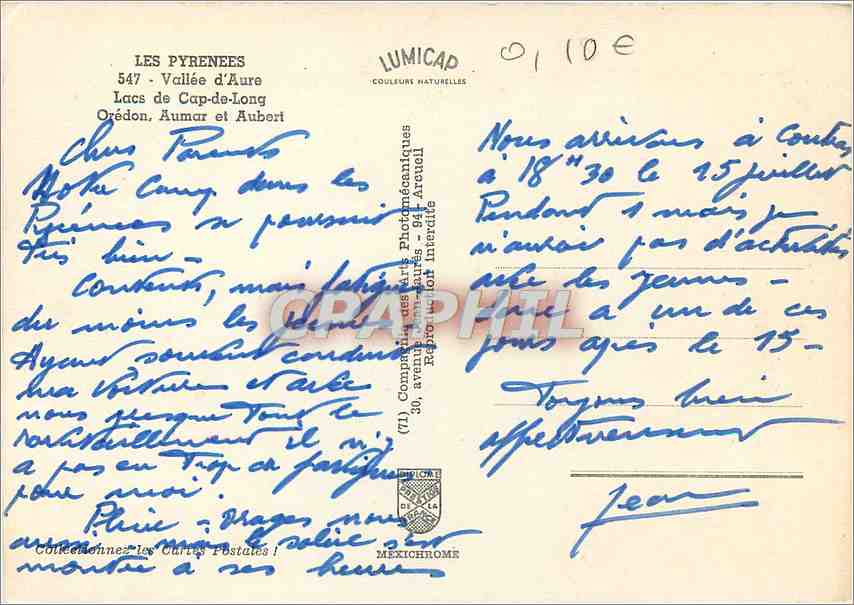 LES PYRENEES
547 - Vallée d'Aure
Lacs de Cap-de-Long
Orédon, Aumar et Aubert
LUMICAP
COULEURS NATURELLES
0,10€
Chers Parents
Notre Camp dans les
Pyrénées se poursuit
très bien -
Contents, mais fatigués
du moins les jeunes
Ayant souvent conduit
ma voiture et avec
nous presque tout le
ravitaillement il n'y
a pas eu trop de fatigue
pour moi.
Pluie - orages nous
aussi - mais le soleil s'est
montré à ses heures
Collectionnez les Cartes Postales !
(71) Compagnie des Arts Photomécaniques
30, avenue Jean-Jaurès - 94 - Arcueil
Reproduction interdite
CPAPHIL
DIPLOME
PRESTIGE
DE LA
FRANCE
MEXICHROME
Nous arrivons à Coutras
à 18H30 le 15 juillet
Pendant 1 mois je
n'aurai pas d'activités
avec les jeunes -
donc à un de ces
jours après le 15 -
Toujours bien
affectueusement
Jean